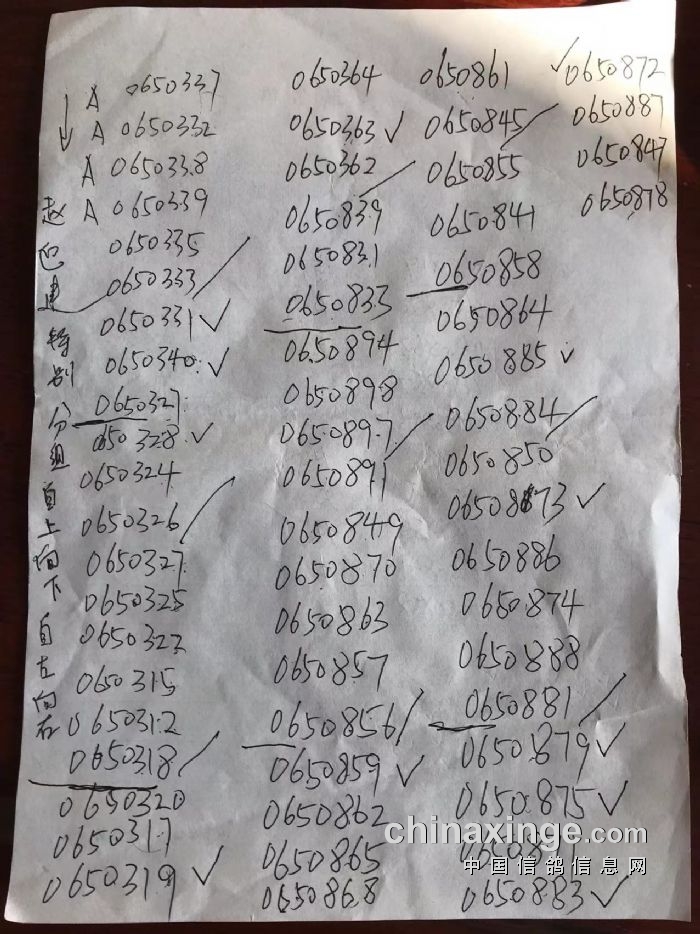 赵巴建特别分组自上向下自左向右
↓ A 0650337
A 0650332
A 0650338
A 0650339
0650335
0650333
0650331 ✓
0650340 ✓
0650327
0650328 ✓
0650324
0650326
0650327
0650325
0650322
0650315
0650312
0650318
0650320
0650317
0650319 ✓
0650364
0650363 ✓
0650362
0650839
0650831
0650833
0650894
0650898
0650897
0650891
0650849
0650870
0650863
0650857
0650856
0650859 ✓
0650862
0650865
0650868
0650861
0650845
0650855
0650841
0650858
0650864
0650885 ✓
0650884
0650850
0650873 ✓
0650886
0650874
0650888
0650881
0650879 ✓
0650875 ✓
0650883 ✓
✓ 0650872
0650887
0650847
0650878
chinaxinge.com
中国信鸽信息网